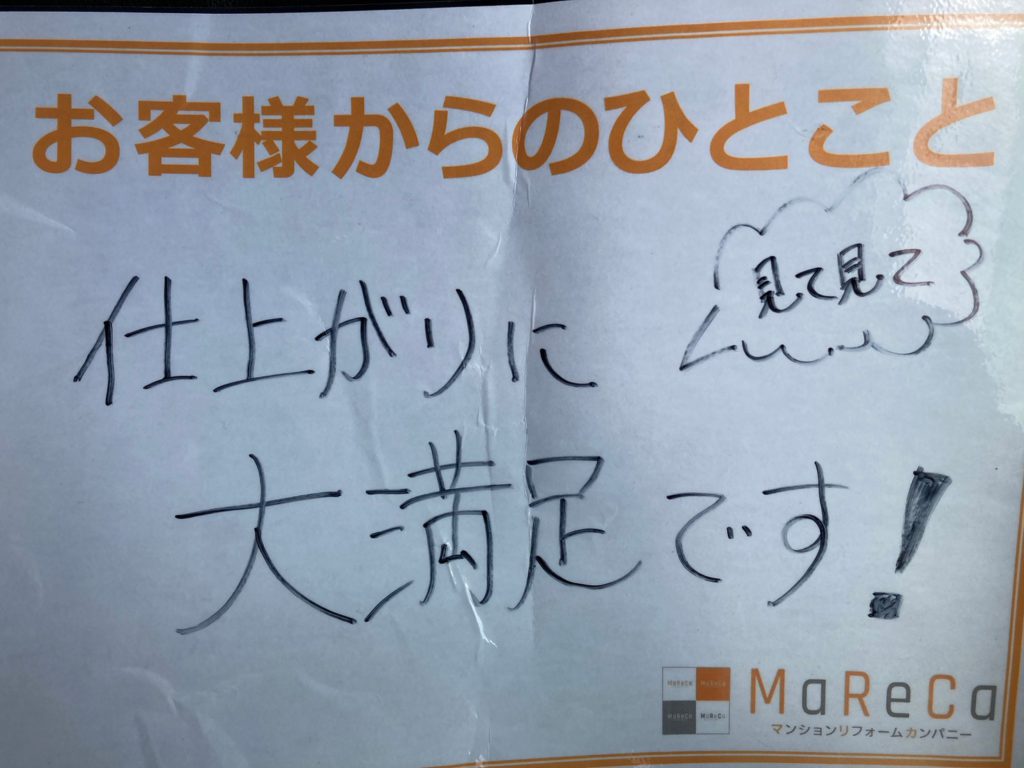 お客様からのひとこと
見て見て
仕上がりに
大満足です!
MaReCa MaReCa
MaReCa MaReCa
MaReCa
マンションリフォームカンパニー